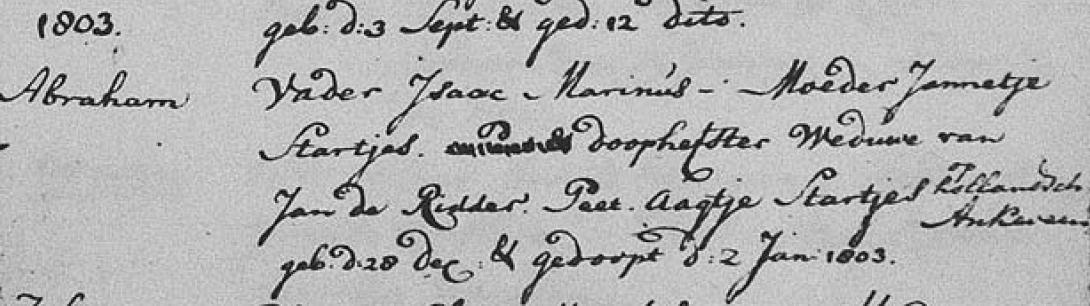 1803. geb: d: 3 Sept: & ged: 12 dito.
Abraham Vader Isaac Marinus - Moeder Jannetje
Startjes. doophefster Weduwe van
Jan de Ridder. Peet. Aagtje Startjes Hollandsch
Ankeveen
geb: d: 28 dec: & gedoopt d: 2 Jan: 1803.